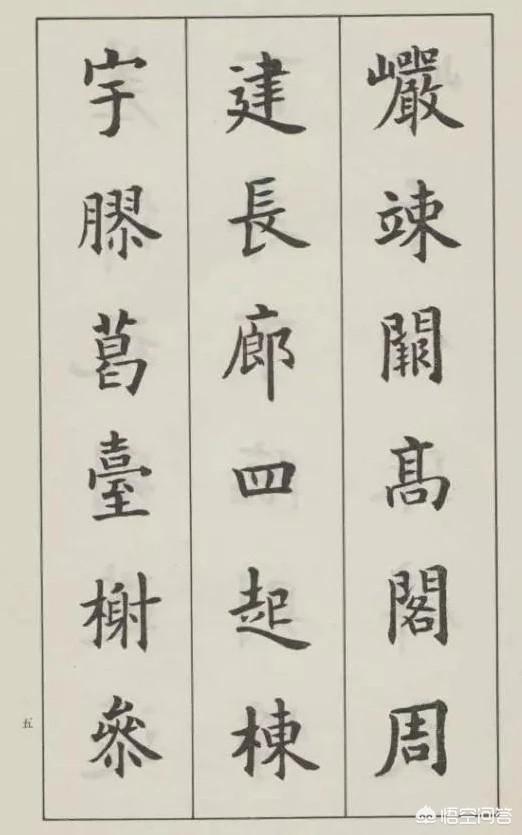 巗竦闕髙閣周
建長廊四起棟
宇膠葛臺榭叅
五
悟空问答